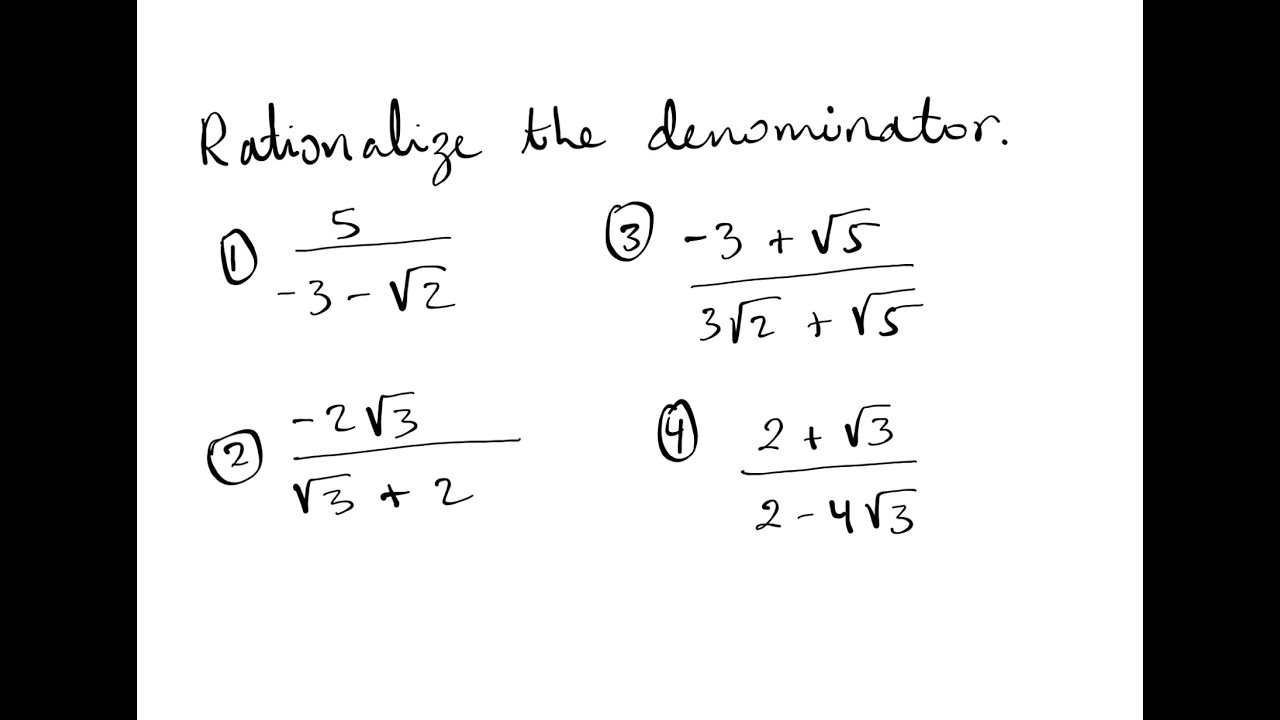 Rationalize the denominator.
① 5 / (-3 - √2)
② -2√3 / (√3 + 2)
③ (-3 + √5) / (3√2 + √5)
④ (2 + √3) / (2 - 4√3)